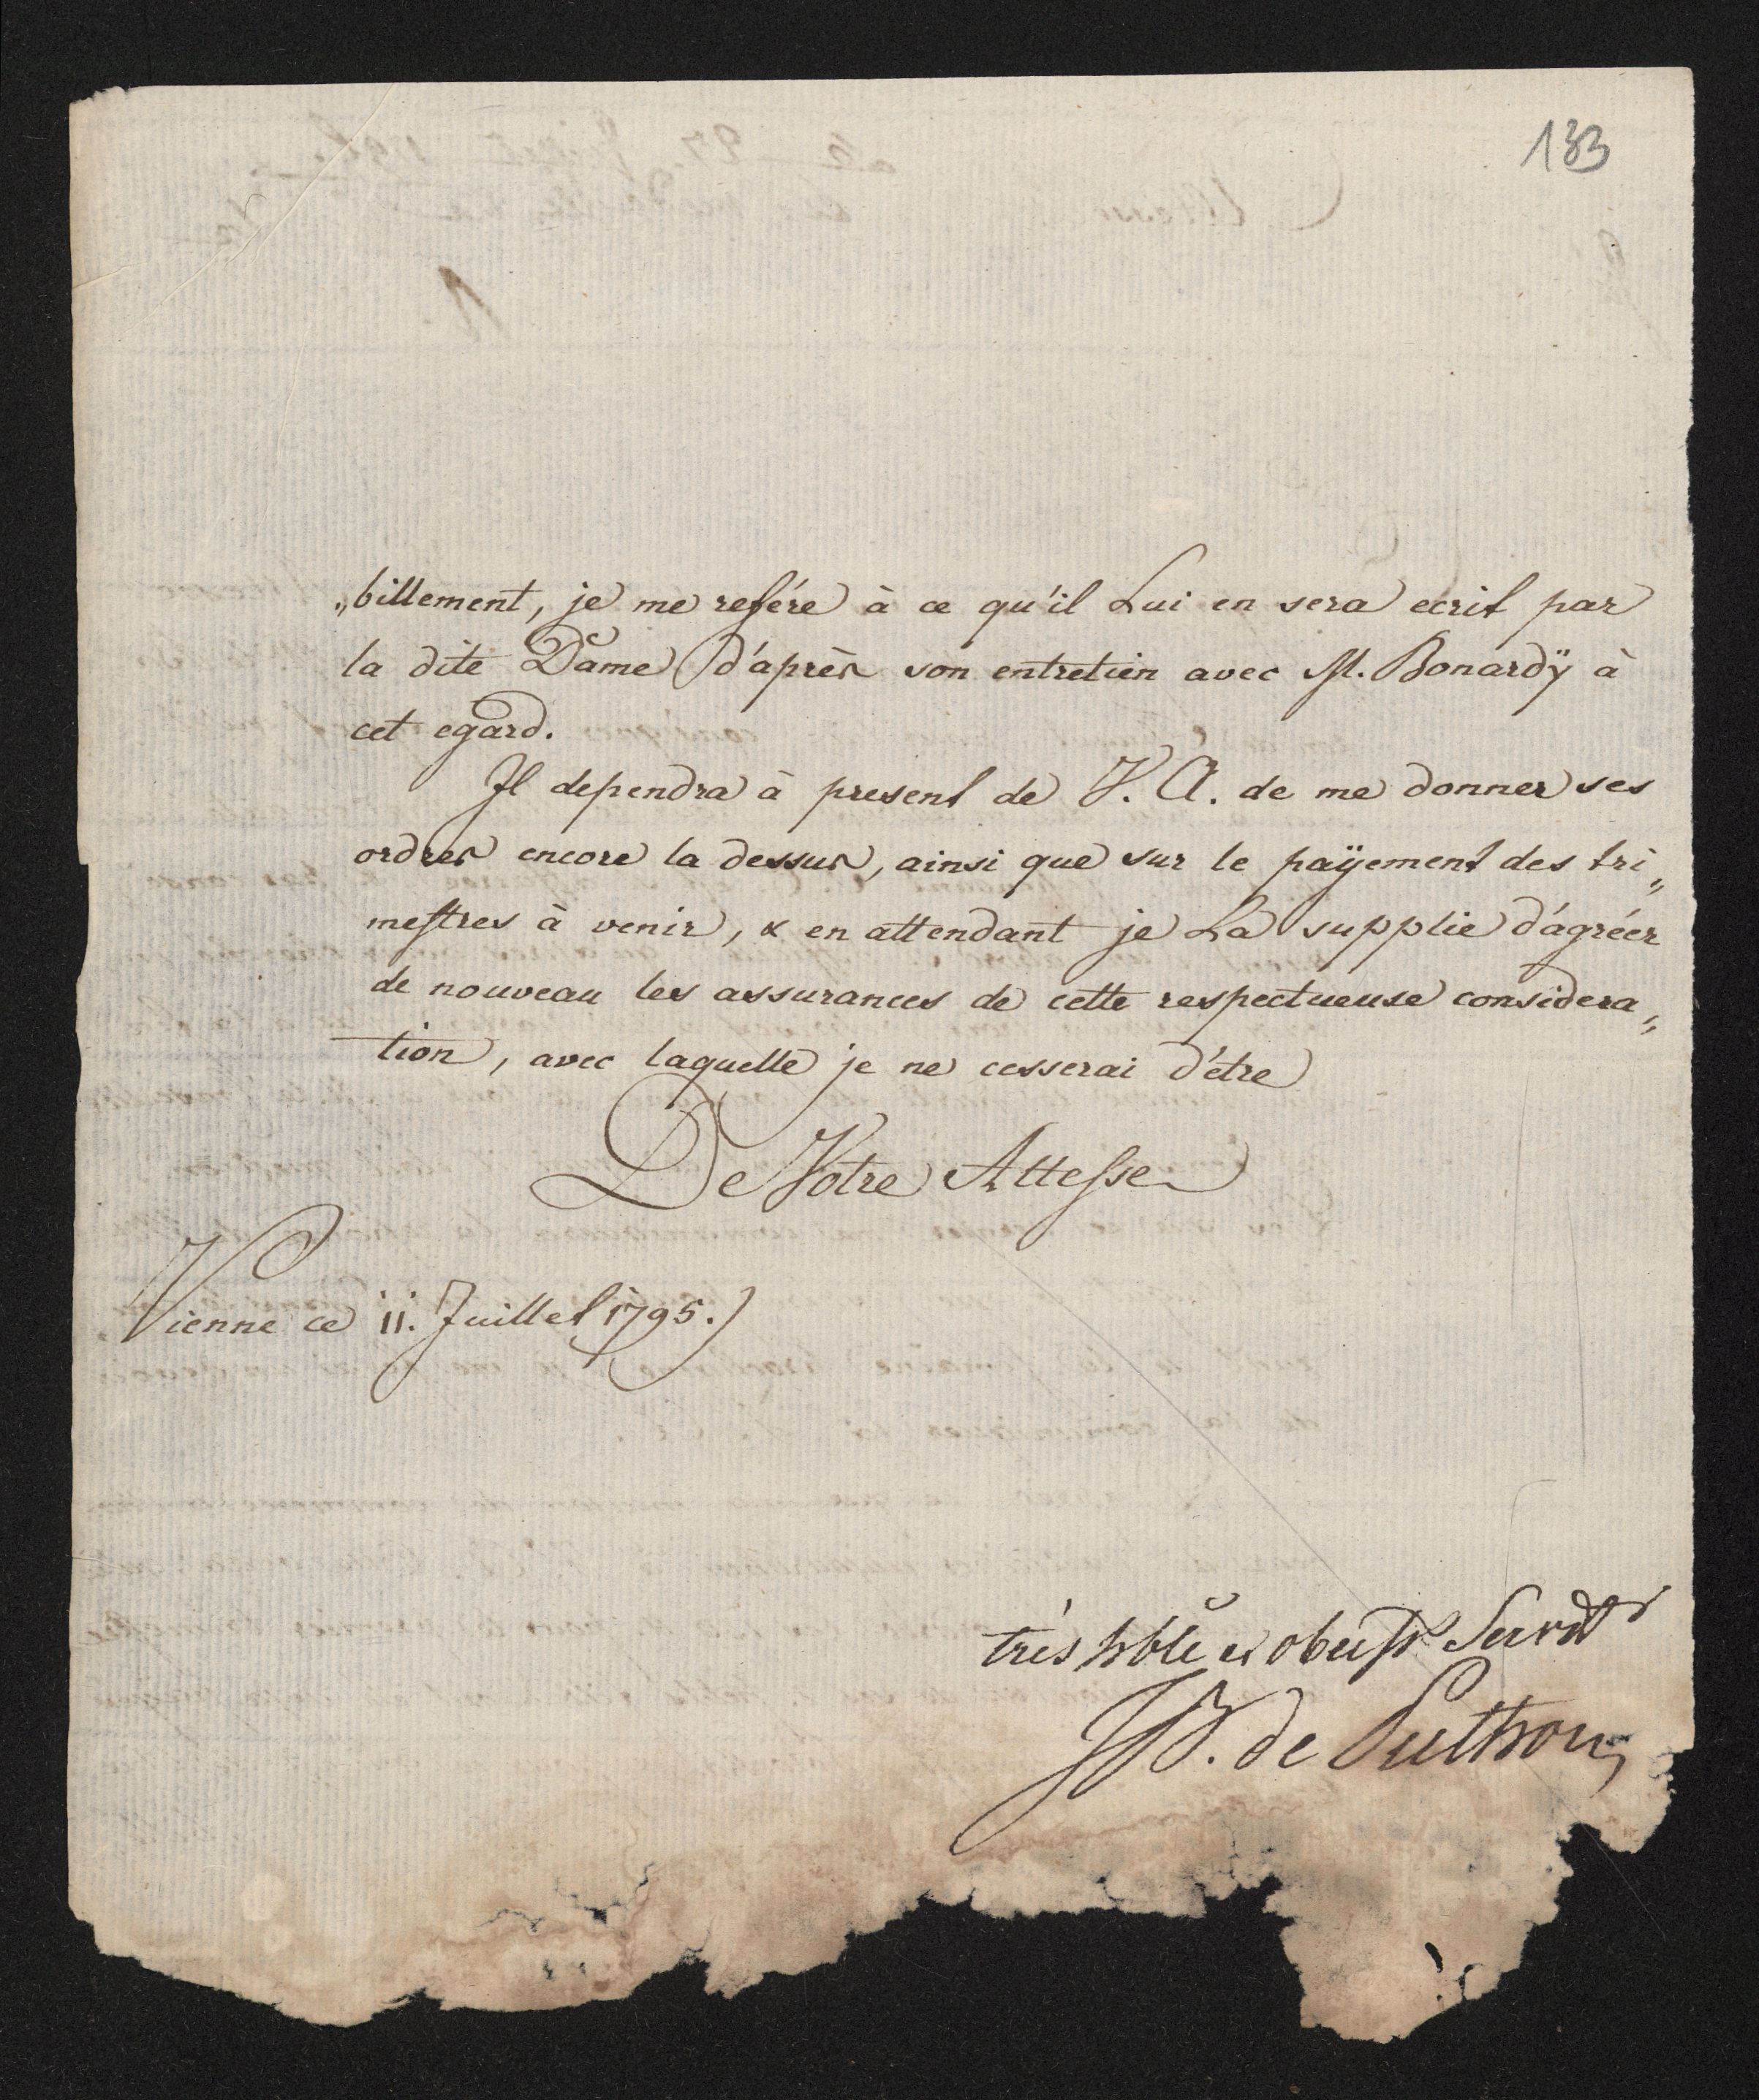 133
„billement, je me refére à ce qu'il Lui en sera ecrit par
la dite Dame d'après son entretien avec M. Bonardÿ à
cet egard.
Il dependra à present de V. A. de me donner ses
ordres encore la dessus, ainsi que sur le paÿement des tri„
mestres à venir, & en attendant je La supplie d'agréer
de nouveau les assurances de cette respectueuse considera„
tion, avec laquelle je ne cesserai d'étre
De Votre Altesse
Vienne ce 11. Juillet 1795.
très hble et obeisst Servt
de Puthon